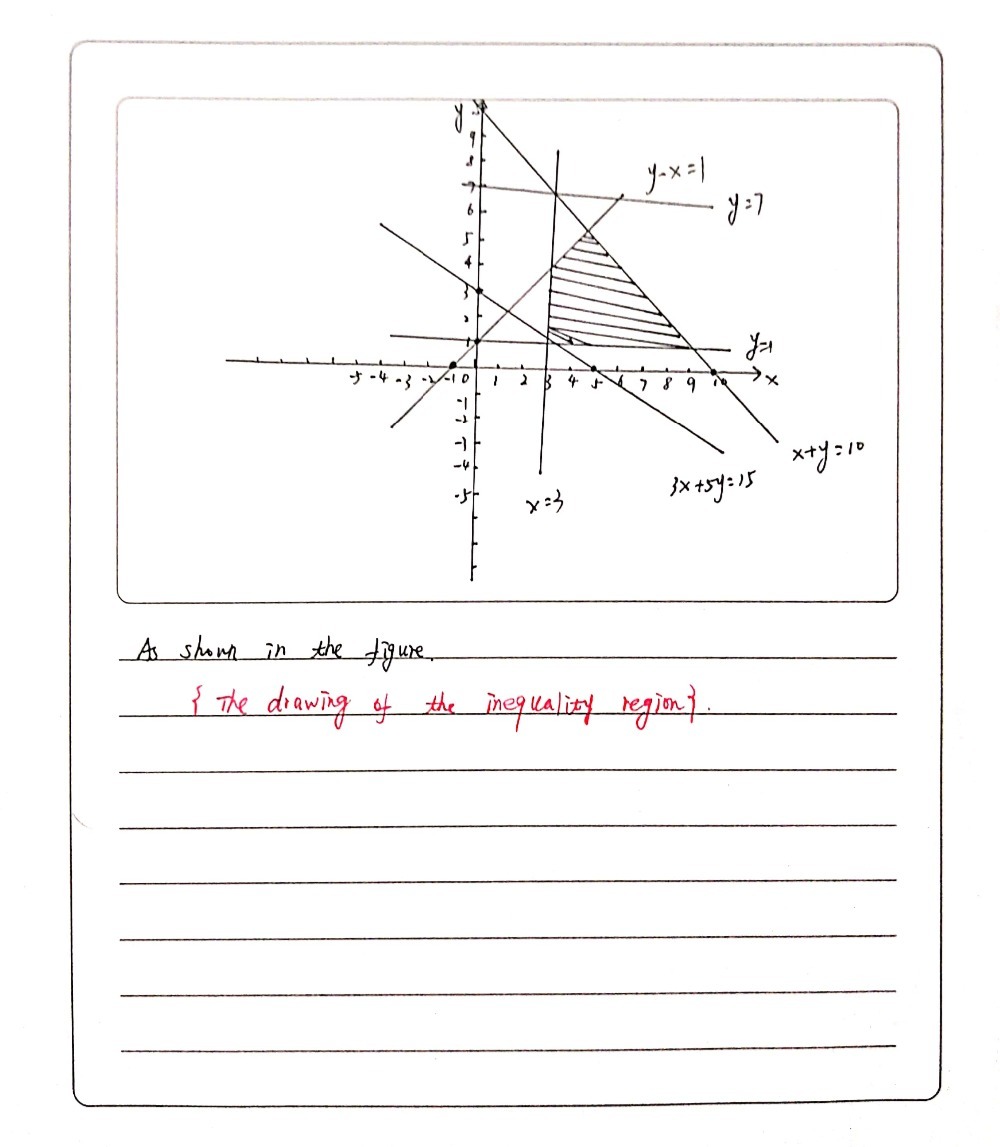 y
10
9
8
7
6
5
4
3
2
1
y-x=1
y=7
y=1
-5 -4 -3 -2 -1 0 1 2 3 4 5 6 7 8 9 10 x
-1
-2
-3
-4
-5
x=3
3x+5y=15
x+y=10
As shown in the figure.
{ The drawing of the inequality region}.